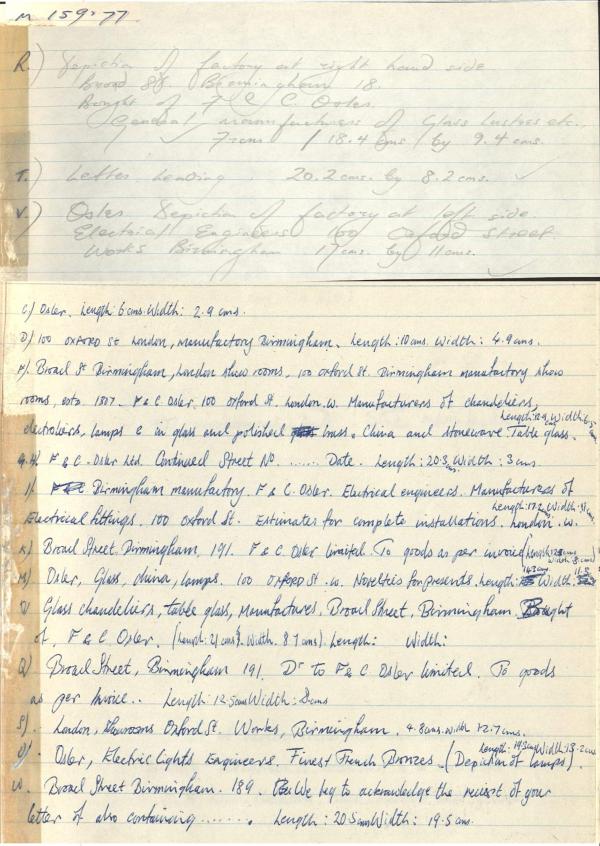 M 159'77
R.) Depiction of factory at right hand side
Broad St. Birmingham 18.
Bought of F & C Osler.
General manufacturers of Glass Lustres etc.,
7cms / 18.4 cms by 9.4 cms.
T.) Letter heading 20.2 cms. by 8.2 cms.
V.) Osler Depiction of factory at left side
Electrical Engineers 100 Oxford Street
Works Birmingham 17 cms. by 11 cms.
C) Osler. Length: 6 cms. Width: 2.9 cms.
D) 100 OXFORD St London, Manufactory Birmingham. Length: 10 cms. Width: 4.9 cms.
Broad St Birmingham, London show rooms, 100 Oxford St. Birmingham manufactory show
rooms, estb. 1807. F & C Osler, 100 Oxford St. London. W. Manufacturers of chandeliers,
Length: Width:
electroliers, lamps & in glass and polished brass. China and stoneware Table glass.
F & C. Osler Ltd. Continued Street No. ...... Date. Length: 20.3 cms Width: 3 cms.
Birmingham manufactory. F & C. Osler. Electrical engineers. Manufacturers of
Length: Width:
Electrical fittings. 100 Oxford St. Estimates for complete installations. London. W.
K) Broad Street Birmingham, 191. F & C. Osler limited. To goods as per invoice (Length: Width: 8 cms)
M) Osler, Glass, china, lamps. 100 OXFORD St. W. Novelties for presents. Length: Width:
Glass chandeliers, table glass, Manufactures. Broad Street, Birmingham. Bought
of, F & C. Osler. (Length: 21 cms. Width. 8.7 cms). Length: Width:
Q) Broad Street, Birmingham 191. Dr to F & C Osler limited. To goods
as per Invoice.. Length: 12.5 cms Width: 8 cms
S). London, showrooms Oxford St. Works, Birmingham. 4.8 cms. width 12.7 cms.
Length: 19.3 cms Width: 13.2 cms
U). Osler, Electric Lights Engineers. Finest French Bronzes. (Depiction of lamps).
W. Broad Street Birmingham. 189. We beg to acknowledge the receipt of your
letter of also containing ........ Length: 20.5 cms Width: 19.5 cms.